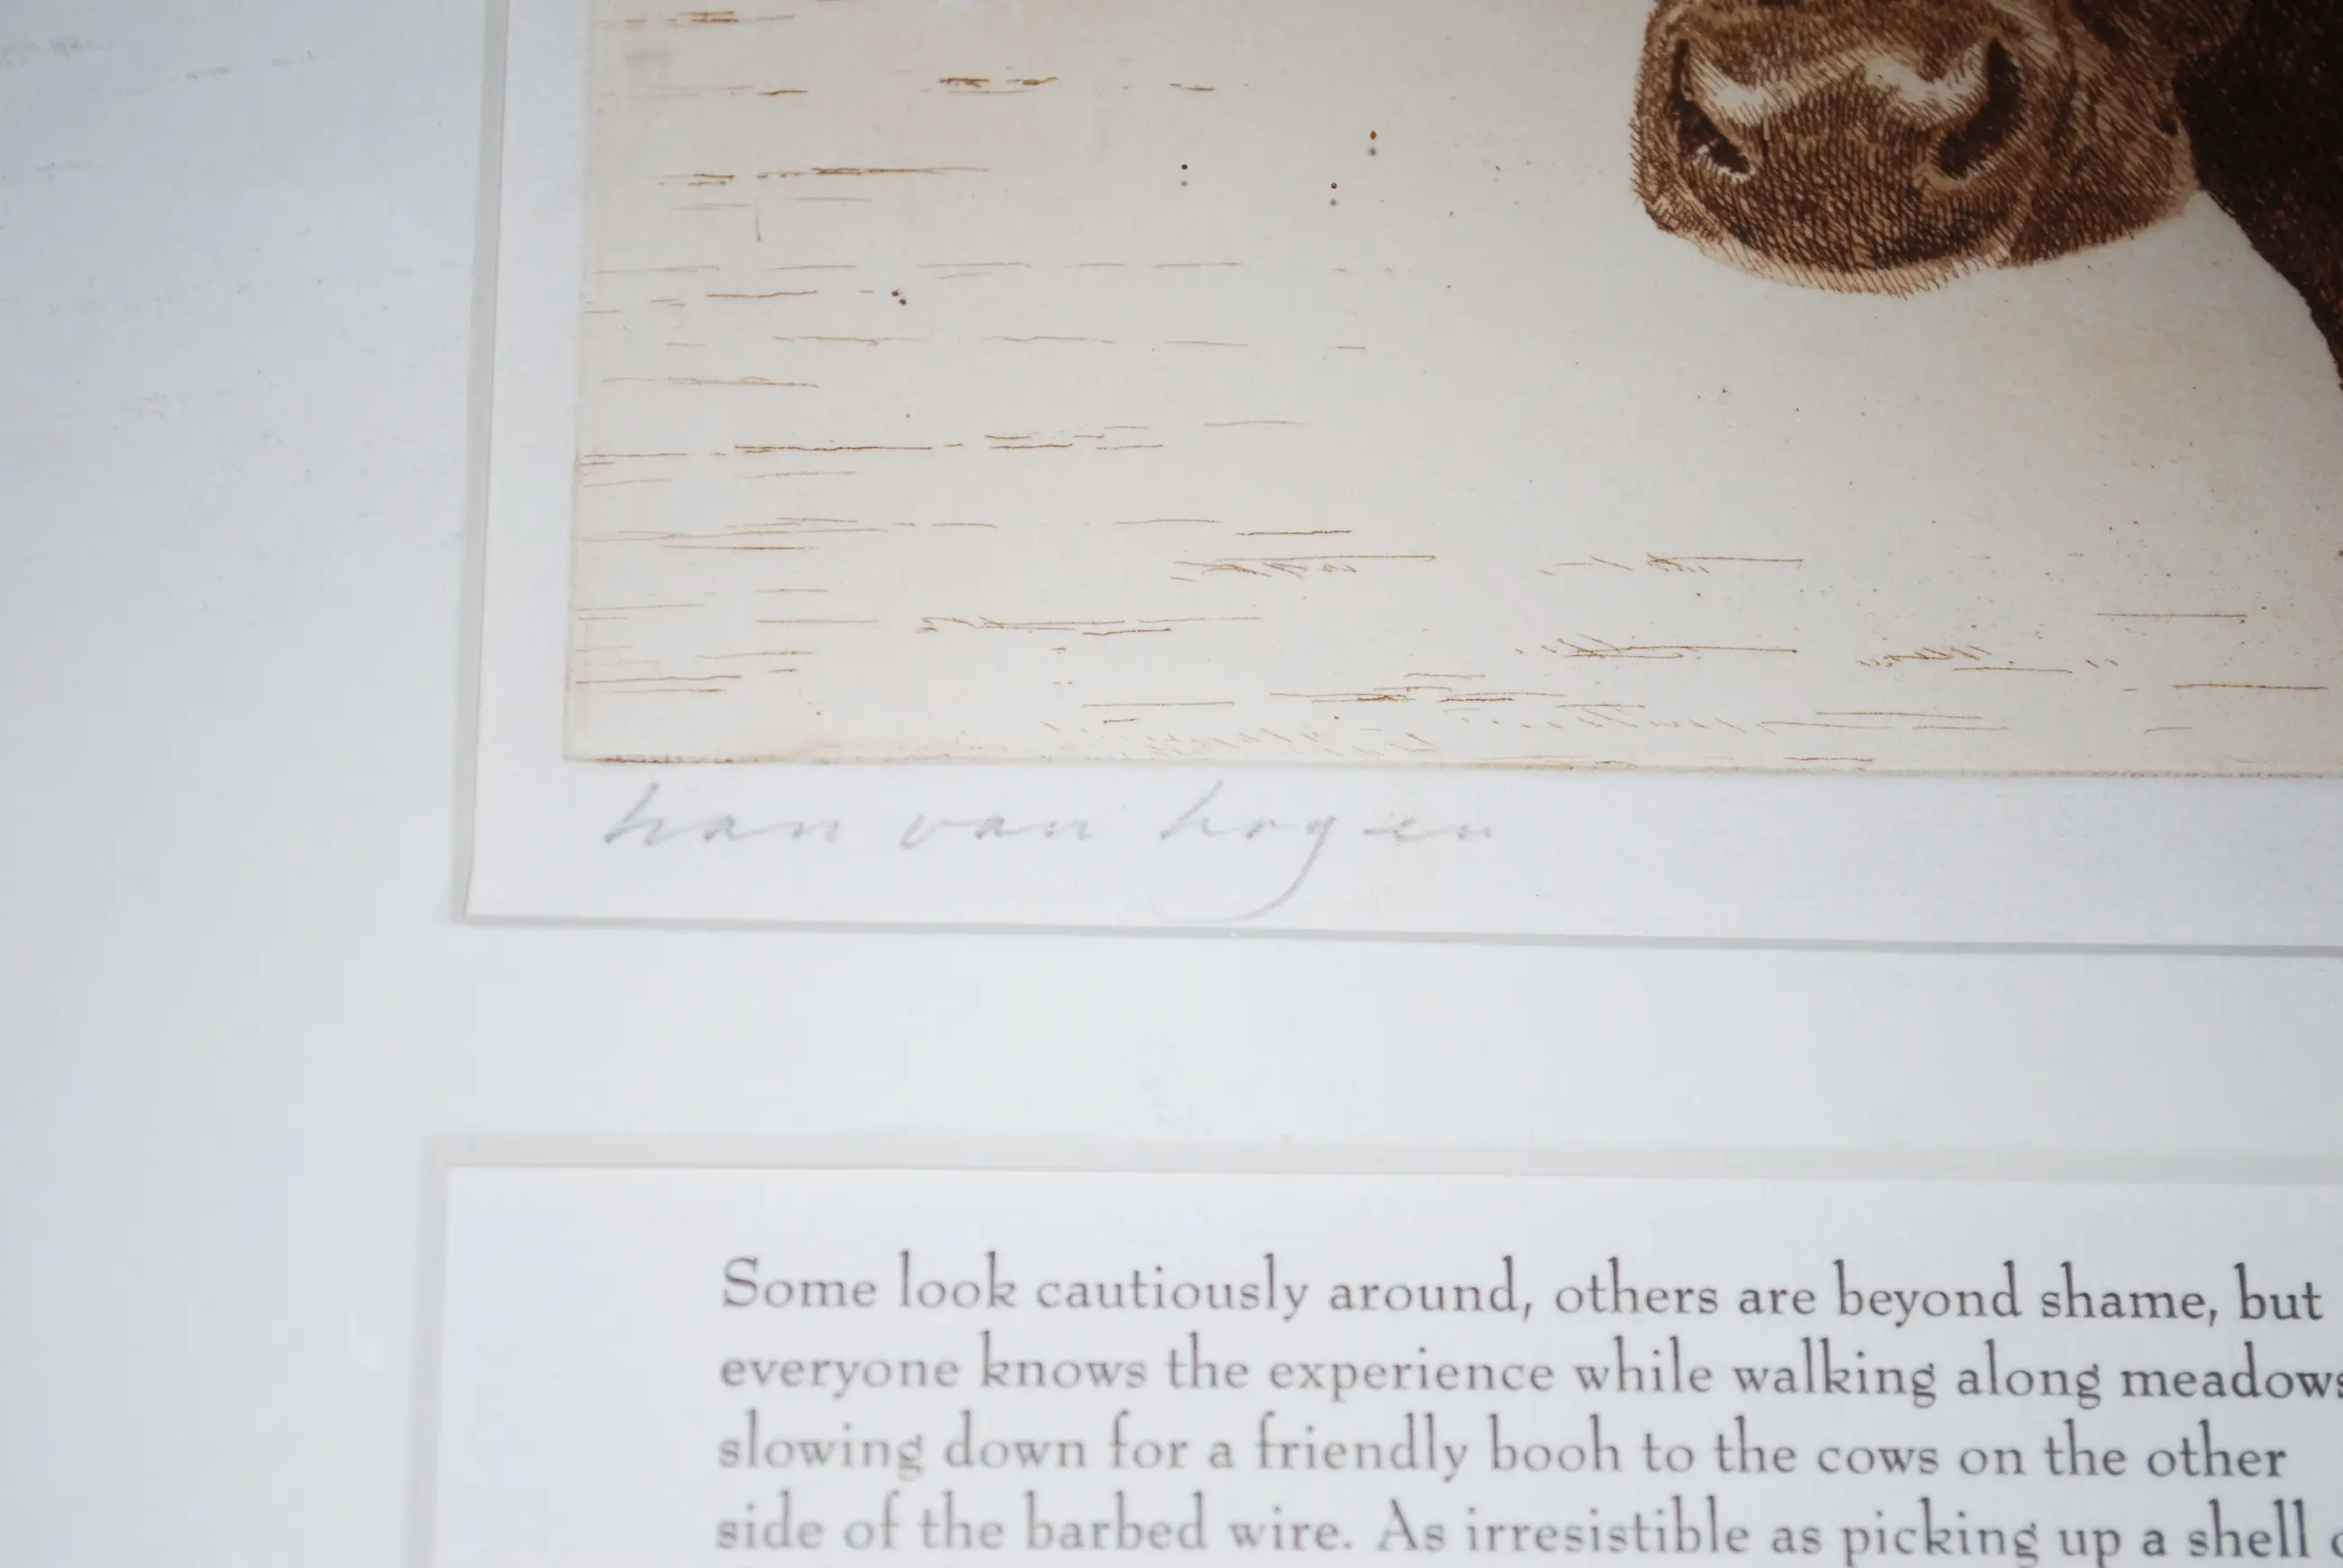 han van hogen
Some look cautiously around, others are beyond shame, but
everyone knows the experience while walking along meadows
slowing down for a friendly booh to the cows on the other
side of the barbed wire. As irresistible as picking up a shell